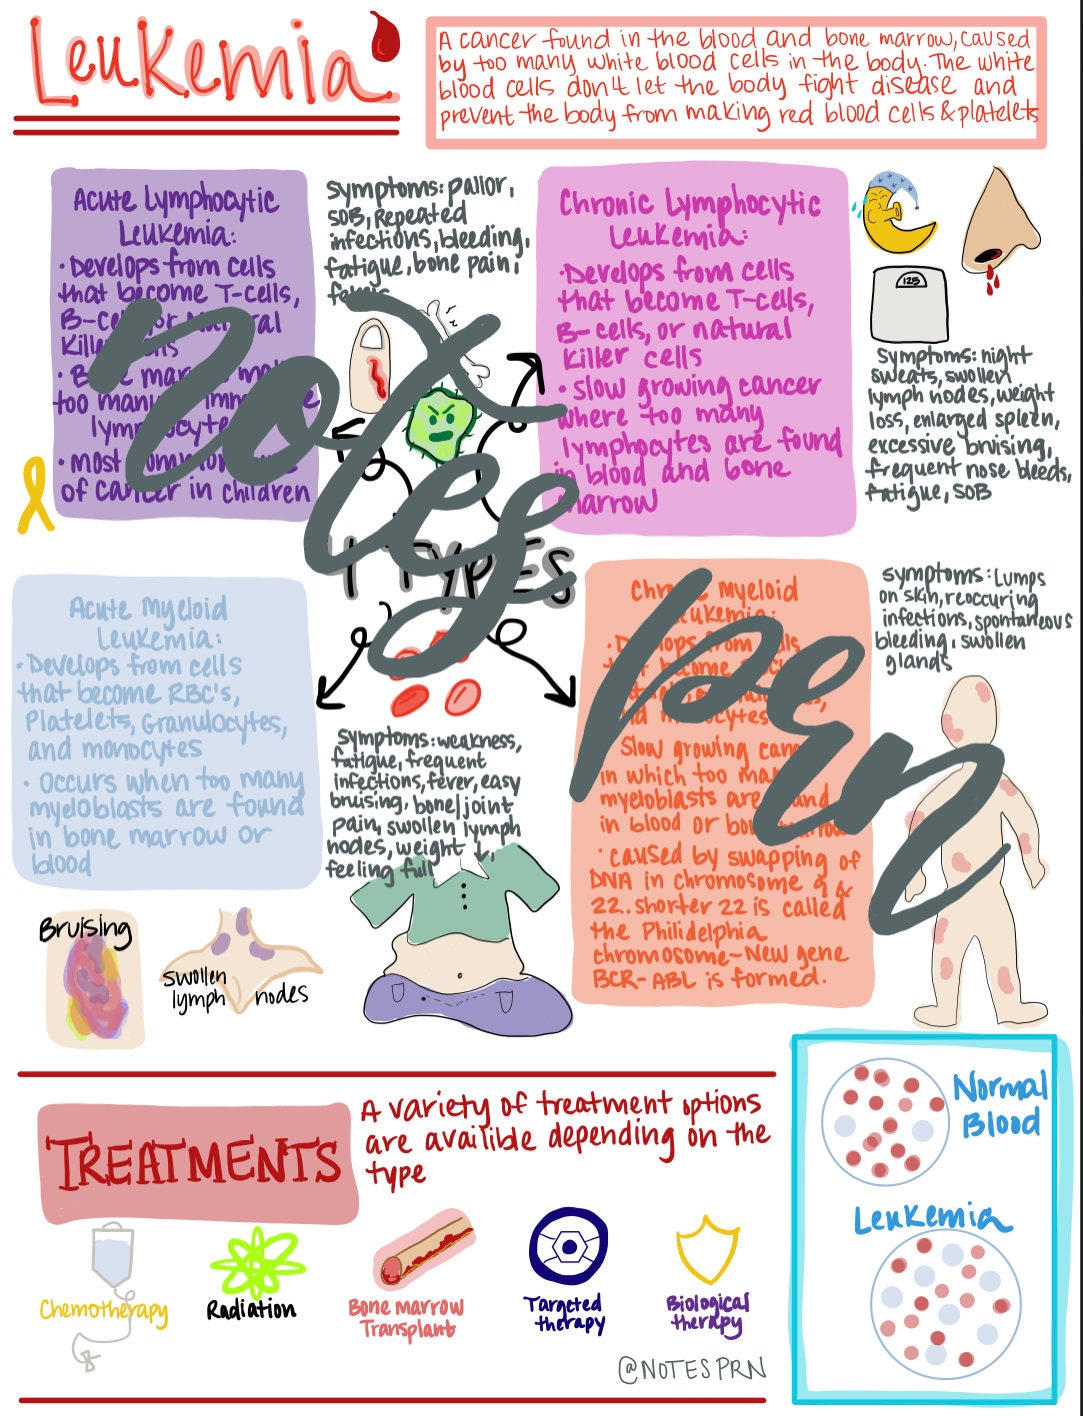 Leukemia
A cancer found in the blood and bone marrow, caused
by too many white blood cells in the body. The white
blood cells don't let the body fight disease and
prevent the body from making red blood cells & platelets
Acute Lymphocytic
Leukemia:
• Develops from cells
that become T-cells,
B-cells or
Killer cells
• Bone marrow
too many
lymphocytes
• most common
of cancer in children
Symptoms: pallor,
SOB, Repeated
infections, bleeding,
fatigue, bone pain,
Chronic Lymphocytic
Leukemia:
• Develops from cells
that become T-cells,
B-cells, or natural
killer cells
• Slow growing cancer
where too many
lymphocytes are found
in blood and bone
marrow
125
Symptoms: night
sweats, swollen
lymph nodes, weight
loss, enlarged spleen,
excessive bruising,
frequent nose bleeds,
fatigue, SOB
4 TYPES
Acute Myeloid
Leukemia:
• Develops from cells
that become RBC's,
Platelets, Granulocytes,
and monocytes
• Occurs when too many
myeloblasts are found
in bone marrow or
blood
Symptoms: weakness,
fatigue, frequent
infections, fever, easy
bruising, bone/joint
pain, swollen lymph
nodes, weight ↓,
feeling full
Chronic Myeloid
Leukemia:
• Develops from cells
that become
and monocytes
Slow growing cancer
in which too many
myeloblasts are found
in blood or bone marrow
• caused by swapping of
DNA in chromosome 9 &
22. Shorter 22 is called
the Philidelphia
chromosome-New gene
BCR-ABL is formed.
Symptoms: Lumps
on skin, reoccuring
infections, spontaneous
bleeding, swollen
glands
notes prn
Bruising
swollen
lymph nodes
TREATMENTS
A variety of treatment options
are availible depending on the
type
Chemotherapy
Radiation
Bone marrow
Transplant
Targeted
therapy
Biological
therapy
@NOTESPRN
Normal
Blood
Leukemia